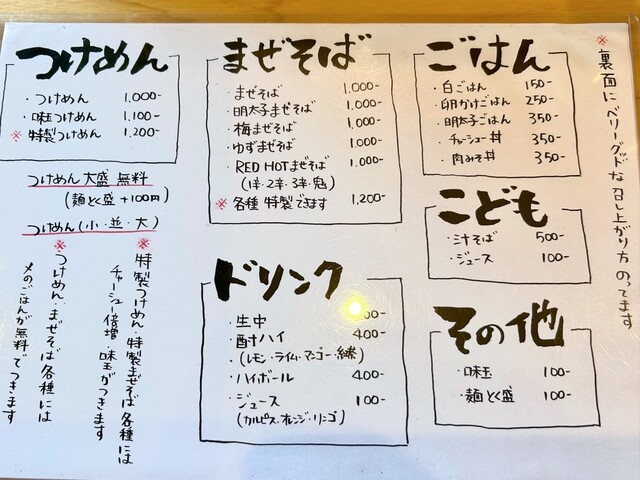 つけめん
・つけめん 1,000-
・味玉つけめん 1,100-
※特製つけめん 1,200-
つけめん 大盛 無料
(麺とく盛 +100円)
つけめん(小・並・大)
※特製つけめん・特製まぜそば各種には
チャーシュー倍増 味玉がつきます
※つけめん・まぜそば各種には
〆のごはんが無料でつきます
まぜそば
・まぜそば 1,000-
・明太子まぜそば 1,000-
・梅まぜそば 1,000-
・ゆずまぜそば 1,000-
・RED HOTまぜそば 1,000-
(1辛・2辛・3辛・鬼)
※各種 特製できます 1,200-
ドリンク
・生中 00-
・酎ハイ 400-
・(レモン・ライム・マンゴー・緑茶)
・ハイボール 400-
・ジュース 100-
(カルピス・オレンジ・リンゴ)
ごはん
・白ごはん 150-
・卵かけごはん 250-
・明太子ごはん 350-
・チャーシュー丼 350-
・肉みそ丼 350-
こども
・汁そば 500-
・ジュース 100-
その他
・味玉 100-
・麺とく盛 100-
※裏面にベリーグッドな召し上がり方のってます